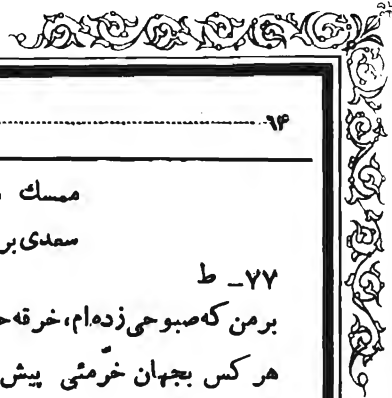 ۶۴
ممسك
سعدی بر
۷۷_ ط
برمن که صبوحی زده‌ام، خرقه
هر کس بجهان خرّمئی پیش